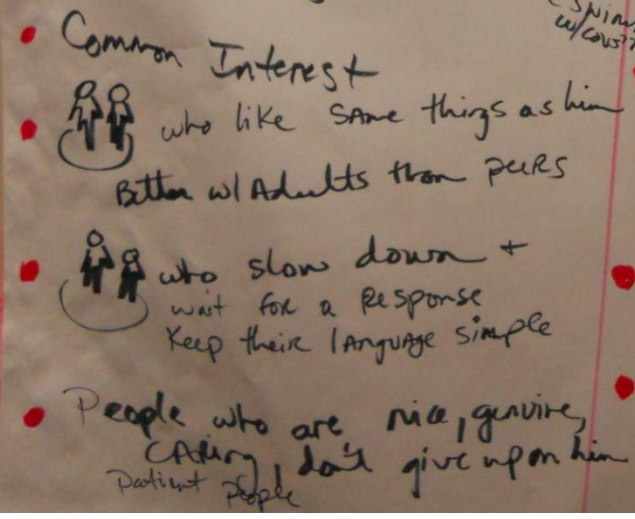 Common Interest
who like same things as him
Better w/ Adults than peers
who slow down +
wait for a Response
Keep their language simple
People who are nice, genuine,
caring, don't give up on him
patient people